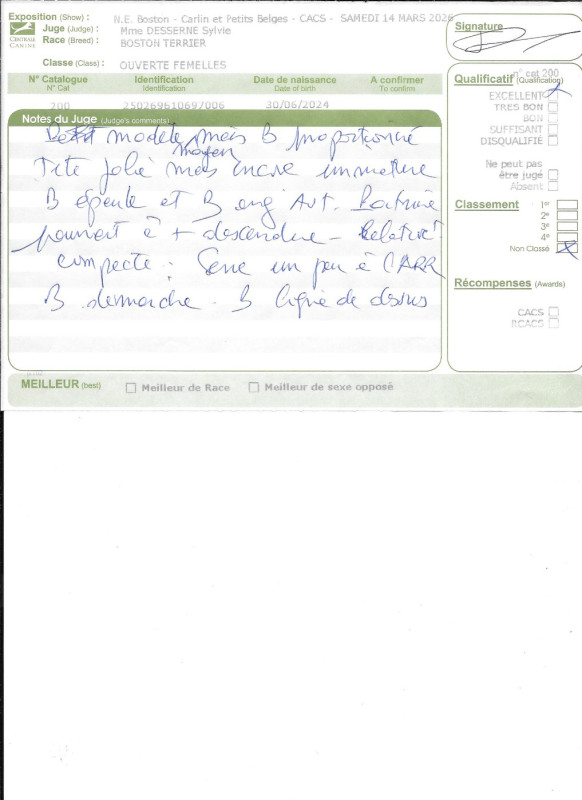 Exposition (Show) : N.E. Boston - Carlin et Petits Belges - CACS - SAMEDI 14 MARS 2026
Juge (Judge) : Mme DESSERNE Sylvie
Race (Breed) : BOSTON TERRIER
CENTRALE CANINE
Classe (Class) : OUVERTE FEMELLES
Signature
N° Catalogue Identification Date de naissance A confirmer
N° Cat Identification Date of birth To confirm
200 250269610697006 30/06/2024
n° cat 200
Qualificatif (Qualification)
EXCELLENT
TRES BON
BON
SUFFISANT
DISQUALIFIÉ
Ne peut pas
être jugé
Absent
Classement 1er
2e
3e
4e
Non Classé
Récompenses (Awards)
CACS
RCACS
Notes du Juge (Judge's comments)
Petit modèle moyen mais B proportionné
Tête jolie mais encore immature
B épaule et B ang Avt. Poitrine
pourrait ê + descendue - Relativt
compacte. Serre un peu à l'ARR
B démarche. B ligne de dessus
MEILLEUR (best) Meilleur de Race Meilleur de sexe opposé